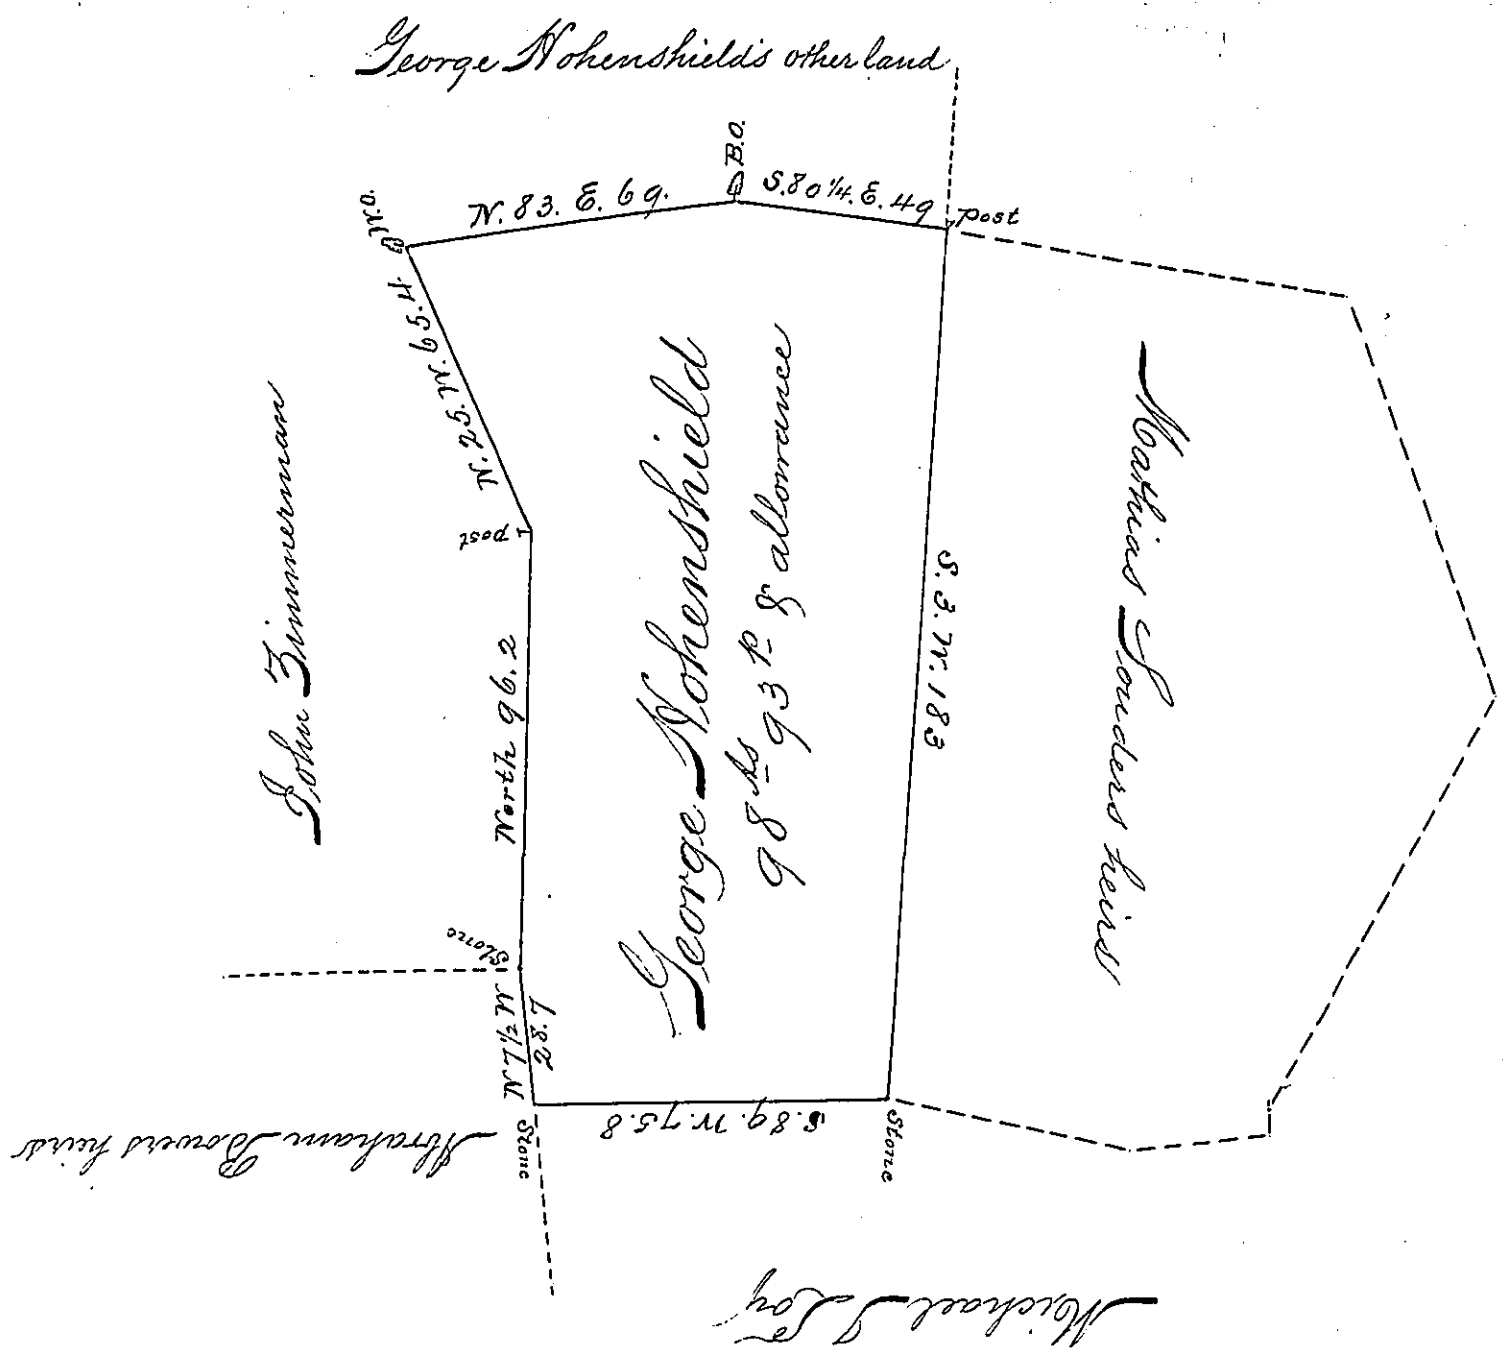 George Hohenshield's other land
B.O.
W.O.
N. 83. E. 69.
S. 80 1/4. E. 49
post
N. 25. W. 65.4
post
John Zimmerman
George Hohenshield
98 As 93 P & allowance
S. 3. W. 183
Mathias Souders heirs
North 96.2
Stone
N 7 1/2 W
28.7
Stone
S. 89. W. 75.8
Stone
Abraham Bowers heirs
Michael Loy